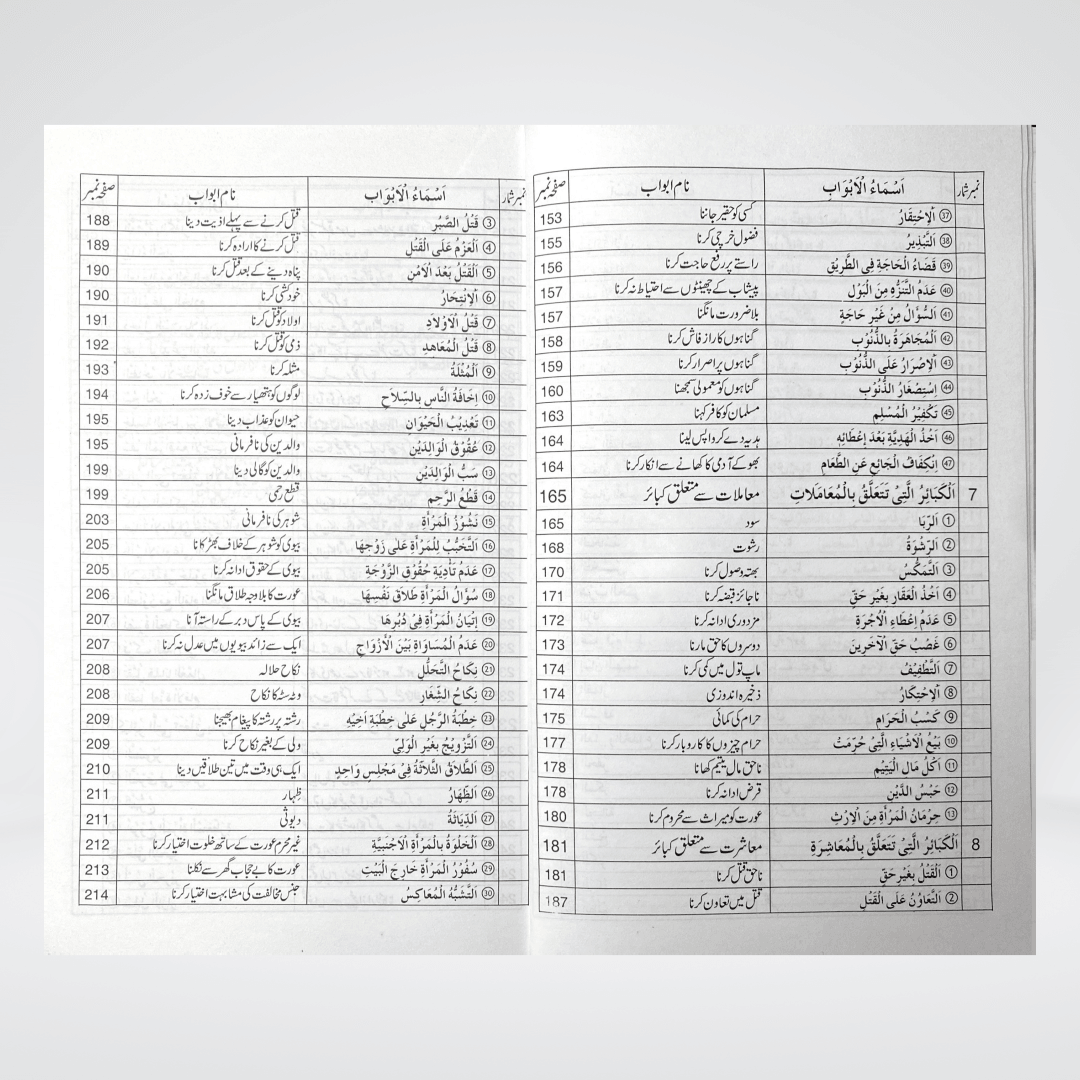 نمبر شمار اَسْمَاءُ الْاَبْوَابِ نام ابواب صفحہ نمبر
㊲ اَلْاِحْتِقَارُ کسی کو حقیر جاننا 153
㊳ اَلتَّبْذِيرُ فضول خرچی کرنا 155
㊴ قَضَاءُ الْحَاجَةِ فِى الطَّرِيْقِ راستے پر رفع حاجت کرنا 156
㊵ عَدَمُ التَّنَزُّهِ مِنَ الْبَوْلِ پیشاب کے چھینٹوں سے احتیاط نہ کرنا 157
㊶ اَلسُّؤَالُ مِنْ غَيْرِ حَاجَةٍ بلا ضرورت مانگنا 157
㊷ اَلْمُجَاهَرَةُ بِالذُّنُوْبِ گناہوں کا راز فاش کرنا 158
㊸ اَلْاِصْرَارُ عَلَى الذُّنُوْبِ گناہوں پر اصرار کرنا 159
㊹ اِسْتِصْغَارُ الذُّنُوْبِ گناہوں کو معمولی سمجھنا 160
㊺ تَكْفِيْرُ الْمُسْلِمِ مسلمان کو کافر کہنا 163
㊻ اَخْذُ الْهَدِيَّةِ بَعْدَ اِعْطَائِهِ ہدیہ دے کر واپس لینا 164
㊼ اِنْكِفَافُ الْجَائِعِ عَنِ الطَّعَامِ بھوکے آدمی کا کھانے سے انکار کرنا 164
7 اَلْكَبَائِرُ الَّتِىْ تَتَعَلَّقُ بِالْمُعَامَلَاتِ معاملات سے متعلق کبائر 165
① اَلرِّبَا سود 165
② اَلرِّشْوَةُ رشوت 168
③ اَلتَّمَكُّسُ بھتہ وصول کرنا 170
④ اَخْذُ الْعَقَارِ بِغَيْرِ حَقٍّ ناجائز قبضہ کرنا 171
⑤ عَدَمُ اِعْطَاءِ الْاُجْرَةِ مزدوری ادا نہ کرنا 172
⑥ غَصْبُ حَقِّ الْآخَرِيْنَ دوسروں کا حق مارنا 173
⑦ اَلتَّطْفِيْفُ ماپ تول میں کمی کرنا 174
⑧ اَلْاِحْتِكَارُ ذخیرہ اندوزی 174
⑨ كَسْبُ الْحَرَامِ حرام کی کمائی 175
⑩ بَيْعُ الْاَشْيَاءِ الَّتِىْ حُرِّمَتْ حرام چیزوں کا کاروبار کرنا 177
⑪ اَكْلُ مَالِ الْيَتِيْمِ ناحق مال یتیم کھانا 178
⑫ حَبْسُ الدَّيْنِ قرض ادا نہ کرنا 178
⑬ حِرْمَانُ الْمَرْأَةِ مِنَ الْاِرْثِ عورت کو میراث سے محروم کرنا 180
8 اَلْكَبَائِرُ الَّتِىْ تَتَعَلَّقُ بِالْمُعَاشِرَةِ معاشرت سے متعلق کبائر 181
① اَلْقَتْلُ بِغَيْرِ حَقٍّ ناحق قتل کرنا 181
② اَلتَّعَاوُنُ عَلَى الْقَتْلِ قتل میں تعاون کرنا 187
نمبر شمار اَسْمَاءُ الْاَبْوَابِ نام ابواب صفحہ نمبر
③ قَتْلُ الصَّبْرِ قتل کرنے سے پہلے اذیت دینا 188
④ اَلْعَزْمُ عَلَى الْقَتْلِ قتل کرنے کا ارادہ کرنا 189
⑤ اَلْقَتْلُ بَعْدَ الْاَمْنِ پناہ دینے کے بعد قتل کرنا 190
⑥ اَلْاِنْتِحَارُ خودکشی کرنا 190
⑦ قَتْلُ الْاَوْلَادِ اولاد کو قتل کرنا 191
⑧ قَتْلُ الْمُعَاهِدِ ذمی کو قتل کرنا 192
⑨ اَلْمُثْلَةُ مثلہ کرنا 193
⑩ اِخَافَةُ النَّاسِ بِالسِّلَاحِ لوگوں کو ہتھیار سے خوف زدہ کرنا 194
⑪ تَعْذِيْبُ الْحَيْوَانِ حیوان کو عذاب دینا 195
⑫ عُقُوْقُ الْوَالِدَيْنِ والدین کی نافرمانی 195
⑬ سَبُّ الْوَالِدَيْنِ والدین کو گالی دینا 199
⑭ قَطْعُ الرَّحِمِ قطع رحمی 199
⑮ نَشُوْزُ الْمَرْأَةِ شوہر کی نافرمانی 203
⑯ اَلتَّخَبُّبُ لِلْمَرْأَةِ عَلٰى زَوْجِهَا بیوی کو شوہر کے خلاف بھڑکانا 205
⑰ عَدَمُ تَأْدِيَةِ حُقُوْقِ الزَّوْجَةِ بیوی کے حقوق ادا نہ کرنا 205
⑱ سُؤَالُ الْمَرْأَةِ طَلَاقَ نَفْسِهَا عورت کا بلا وجہ طلاق مانگنا 206
⑲ اِتْيَانُ الْمَرْأَةِ فِىْ دُبُرِهَا بیوی کے پاس دبر کے راستہ آنا 207
⑳ عَدَمُ الْمُسَاوَاةِ بَيْنَ الْأَزْوَاجِ ایک سے زائد بیویوں میں عدل نہ کرنا 207
㉑ نِكَاحُ التَّحَلُّلِ نکاح حلالہ 208
㉒ نِكَاحُ الشِّغَارِ وٹہ سٹہ کا نکاح 208
㉓ خِطْبَةُ الرَّجُلِ عَلٰى خِطْبَةِ اَخِيْهِ رشتہ پر رشتہ کا پیغام بھیجنا 209
㉔ اَلتَّزْوِيْجُ بِغَيْرِ الْوَلِىِّ ولی کے بغیر نکاح کرنا 209
㉕ اَلطَّلَاقُ الثَّلَاثَةُ فِىْ مَجْلِسٍ وَاحِدٍ ایک ہی وقت میں تین طلاقیں دینا 210
㉖ اَلظِّهَارُ ظہار 211
㉗ اَلدِّيَاثَةُ دیوثی 211
㉘ اَلْخَلْوَةُ بِالْمَرْأَةِ الْاَجْنَبِيَّةِ غیر محرم عورت کے ساتھ خلوت اختیار کرنا 212
㉙ سُفُوْرُ الْمَرْأَةِ خَارِجَ الْبَيْتِ عورت کا بے حجاب گھر سے نکلنا 213
㉚ اَلتَّشَبُّهُ الْمُعَاكِسُ جنس مخالفت کی مشابہت اختیار کرنا 214